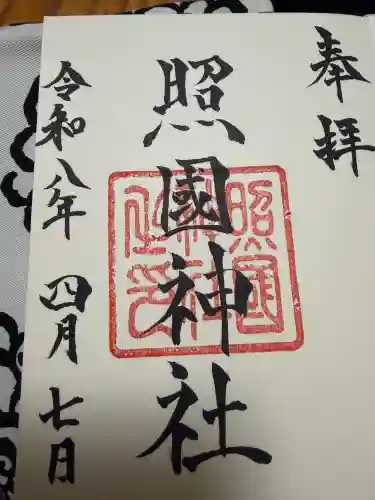 奉拝
照國神社
照国神社之印
令和八年 四月 七日